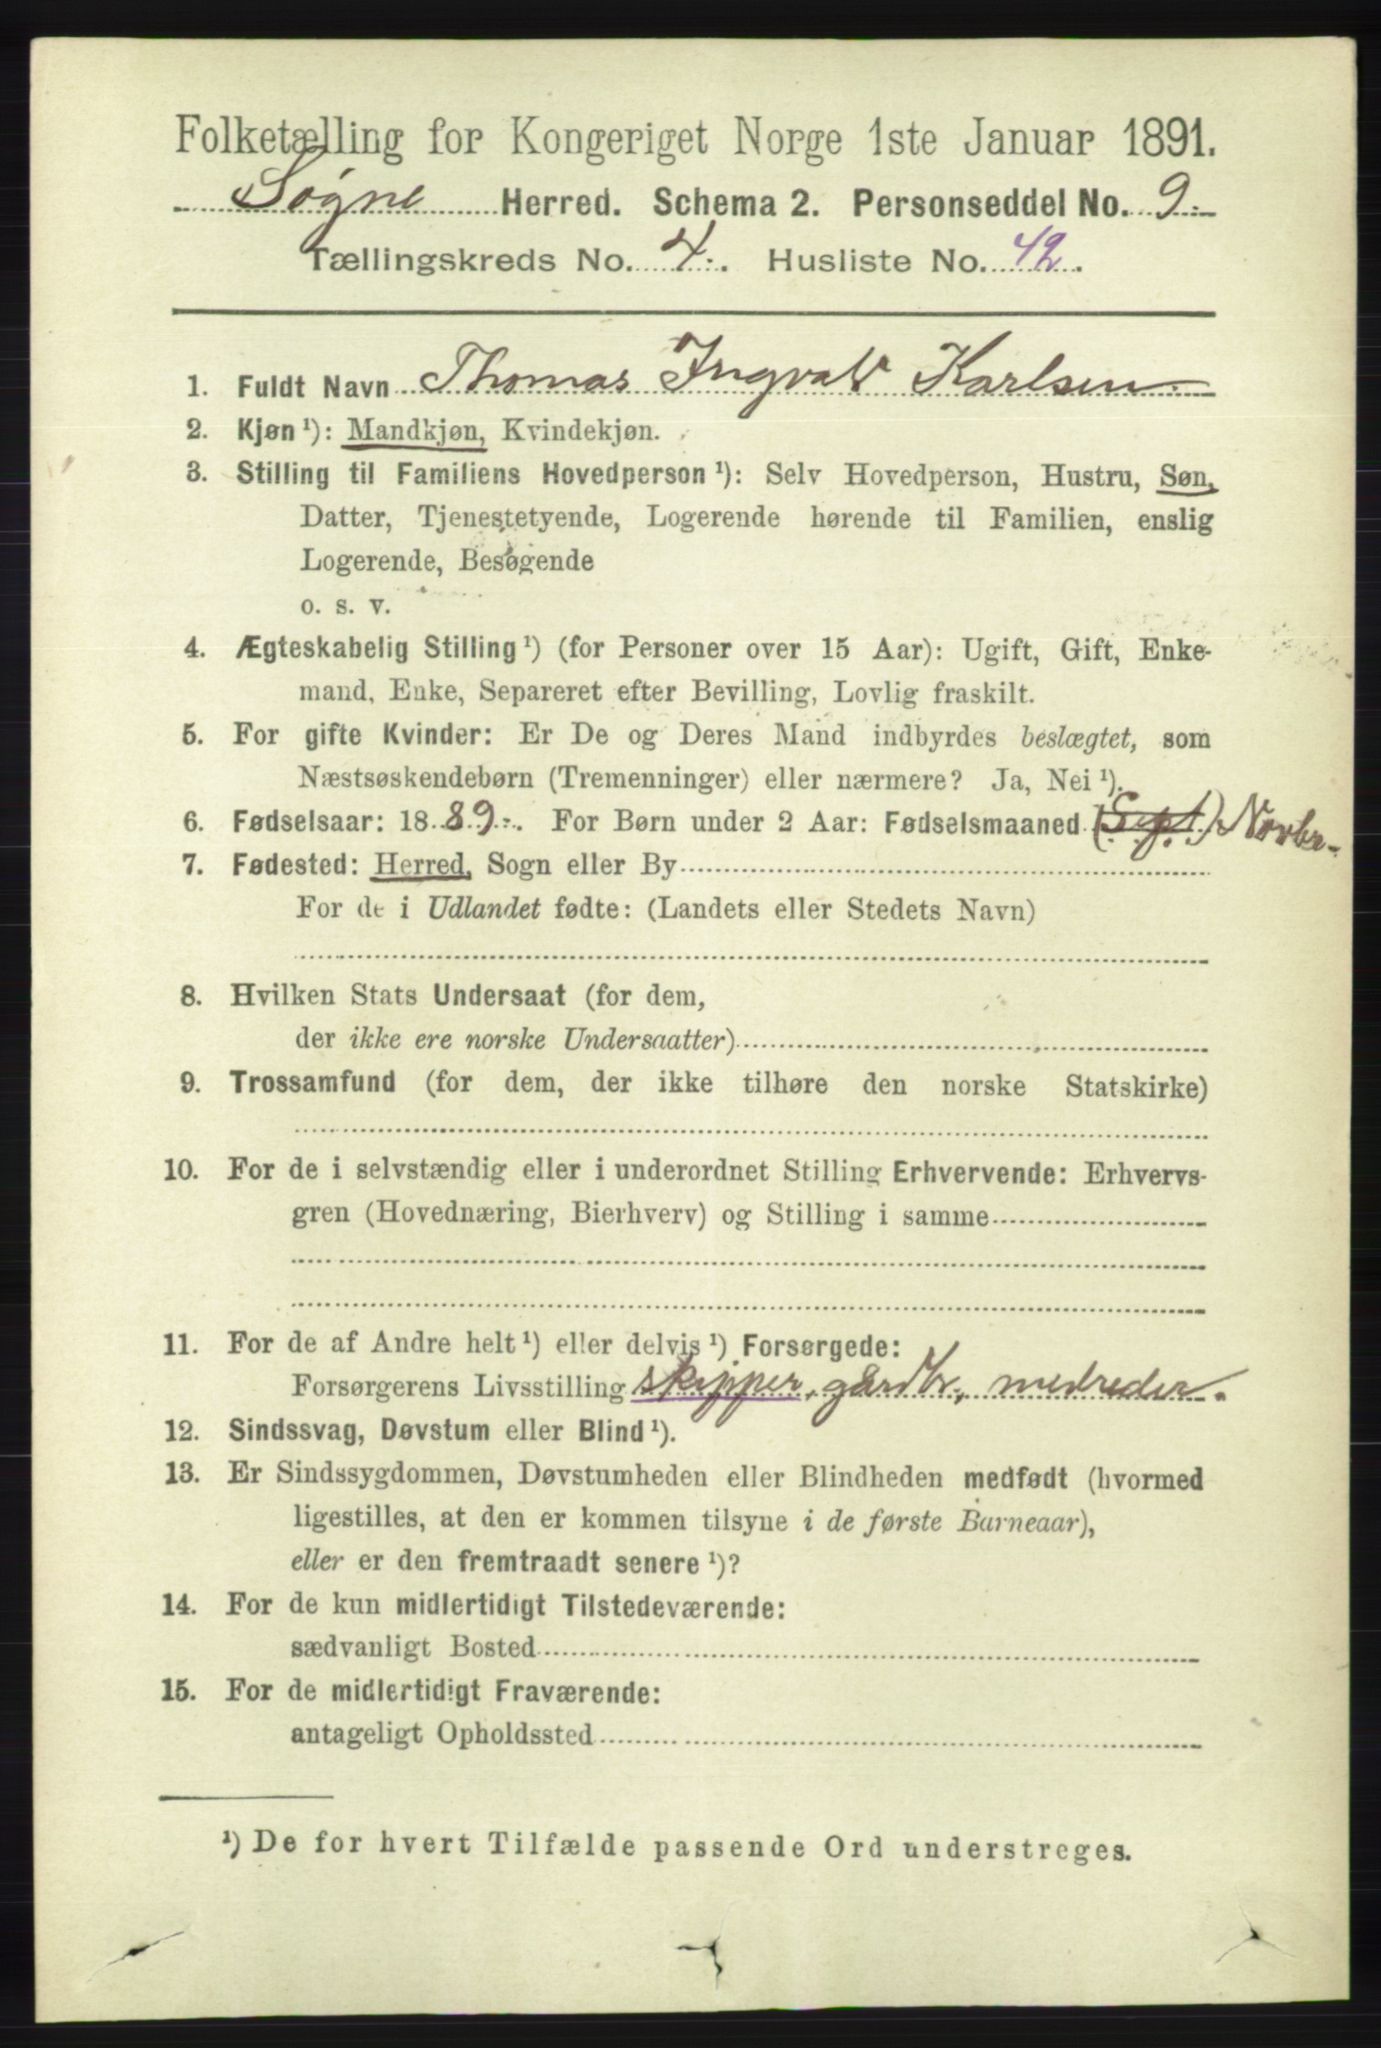 Folketælling for Kongeriget Norge 1ste Januar 1891.
Søgne Herred. Schema 2. Personseddel No. 9.
Tællingskreds No. 4. Husliste No. 42.
1. Fuldt Navn Thomas Ingvald Karlsen
2. Kjøn ¹): Mandkjøn, Kvindekjøn.
3. Stilling til Familiens Hovedperson ¹): Selv Hovedperson, Hustru, Søn,
Datter, Tjenestetyende, Logerende hørende til Familien, enslig
Logerende, Besøgende
o. s. v.
4. Ægteskabelig Stilling ¹) (for Personer over 15 Aar): Ugift, Gift, Enke-
mand, Enke, Separeret efter Bevilling, Lovlig fraskilt.
5. For gifte Kvinder: Er De og Deres Mand indbyrdes beslægtet, som
Næstsøskendebørn (Tremenninger) eller nærmere? Ja, Nei ¹).
6. Fødselsaar: 1889. For Børn under 2 Aar: Fødselsmaaned (Sept.) Novbr.
7. Fødested: Herred, Sogn eller By
For de i Udlandet fødte: (Landets eller Stedets Navn)
8. Hvilken Stats Undersaat (for dem,
der ikke ere norske Undersaatter)
9. Trossamfund (for dem, der ikke tilhøre den norske Statskirke)
10. For de i selvstændig eller i underordnet Stilling Erhvervende: Erhvervs-
gren (Hovednæring, Bierhverv) og Stilling i samme
11. For de af Andre helt ¹) eller delvis ¹) Forsørgede:
Forsørgerens Livsstilling skipper, gårdbr, medreder.
12. Sindssvag, Døvstum eller Blind ¹).
13. Er Sindssygdommen, Døvstumheden eller Blindheden medfødt (hvormed
ligestilles, at den er kommen tilsyne i de første Barneaar),
eller er den fremtraadt senere ¹)?
14. For de kun midlertidigt Tilstedeværende:
sædvanligt Bosted
15. For de midlertidigt Fraværende:
antageligt Opholdssted
¹) De for hvert Tilfælde passende Ord understreges.